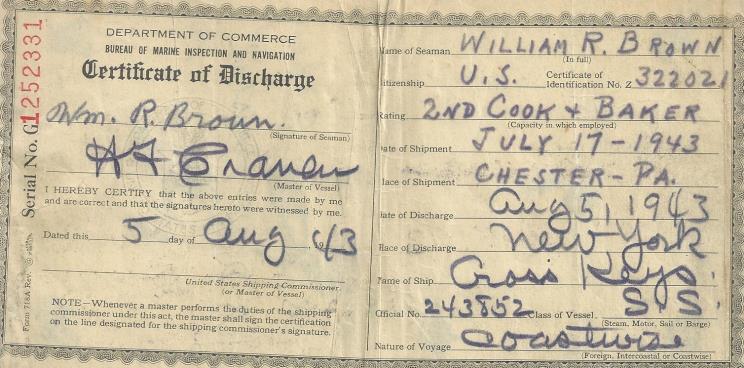 DEPARTMENT OF COMMERCE
BUREAU OF MARINE INSPECTION AND NAVIGATION
Certificate of Discharge
Serial No. G1252331
Wm. R. Brown.
(Signature of Seaman)
(Master of Vessel)
I HEREBY CERTIFY that the above entries were made by me
and are correct and that the signatures hereto were witnessed by me.
Dated this 5 day of Aug, 1943
United States Shipping Commissioner.
(or Master of Vessel)
NOTE—Whenever a master performs the duties of the shipping
commissioner under this act, the master shall sign the certification
on the line designated for the shipping commissioner's signature.
Form 718A Rev.
Name of Seaman WILLIAM R. BROWN
(In full)
Citizenship U.S. Certificate of
Identification No. Z 322021
Rating 2ND COOK & BAKER
(Capacity in which employed)
Date of Shipment JULY 17-1943
Place of Shipment CHESTER-PA.
Date of Discharge Aug 5, 1943
Place of Discharge New York
Name of Ship Cross Keys.
Official No. 243852 Class of Vessel S.S.
(Steam, Motor, Sail or Barge)
Nature of Voyage Coastwise
(Foreign, Intercoastal or Coastwise)